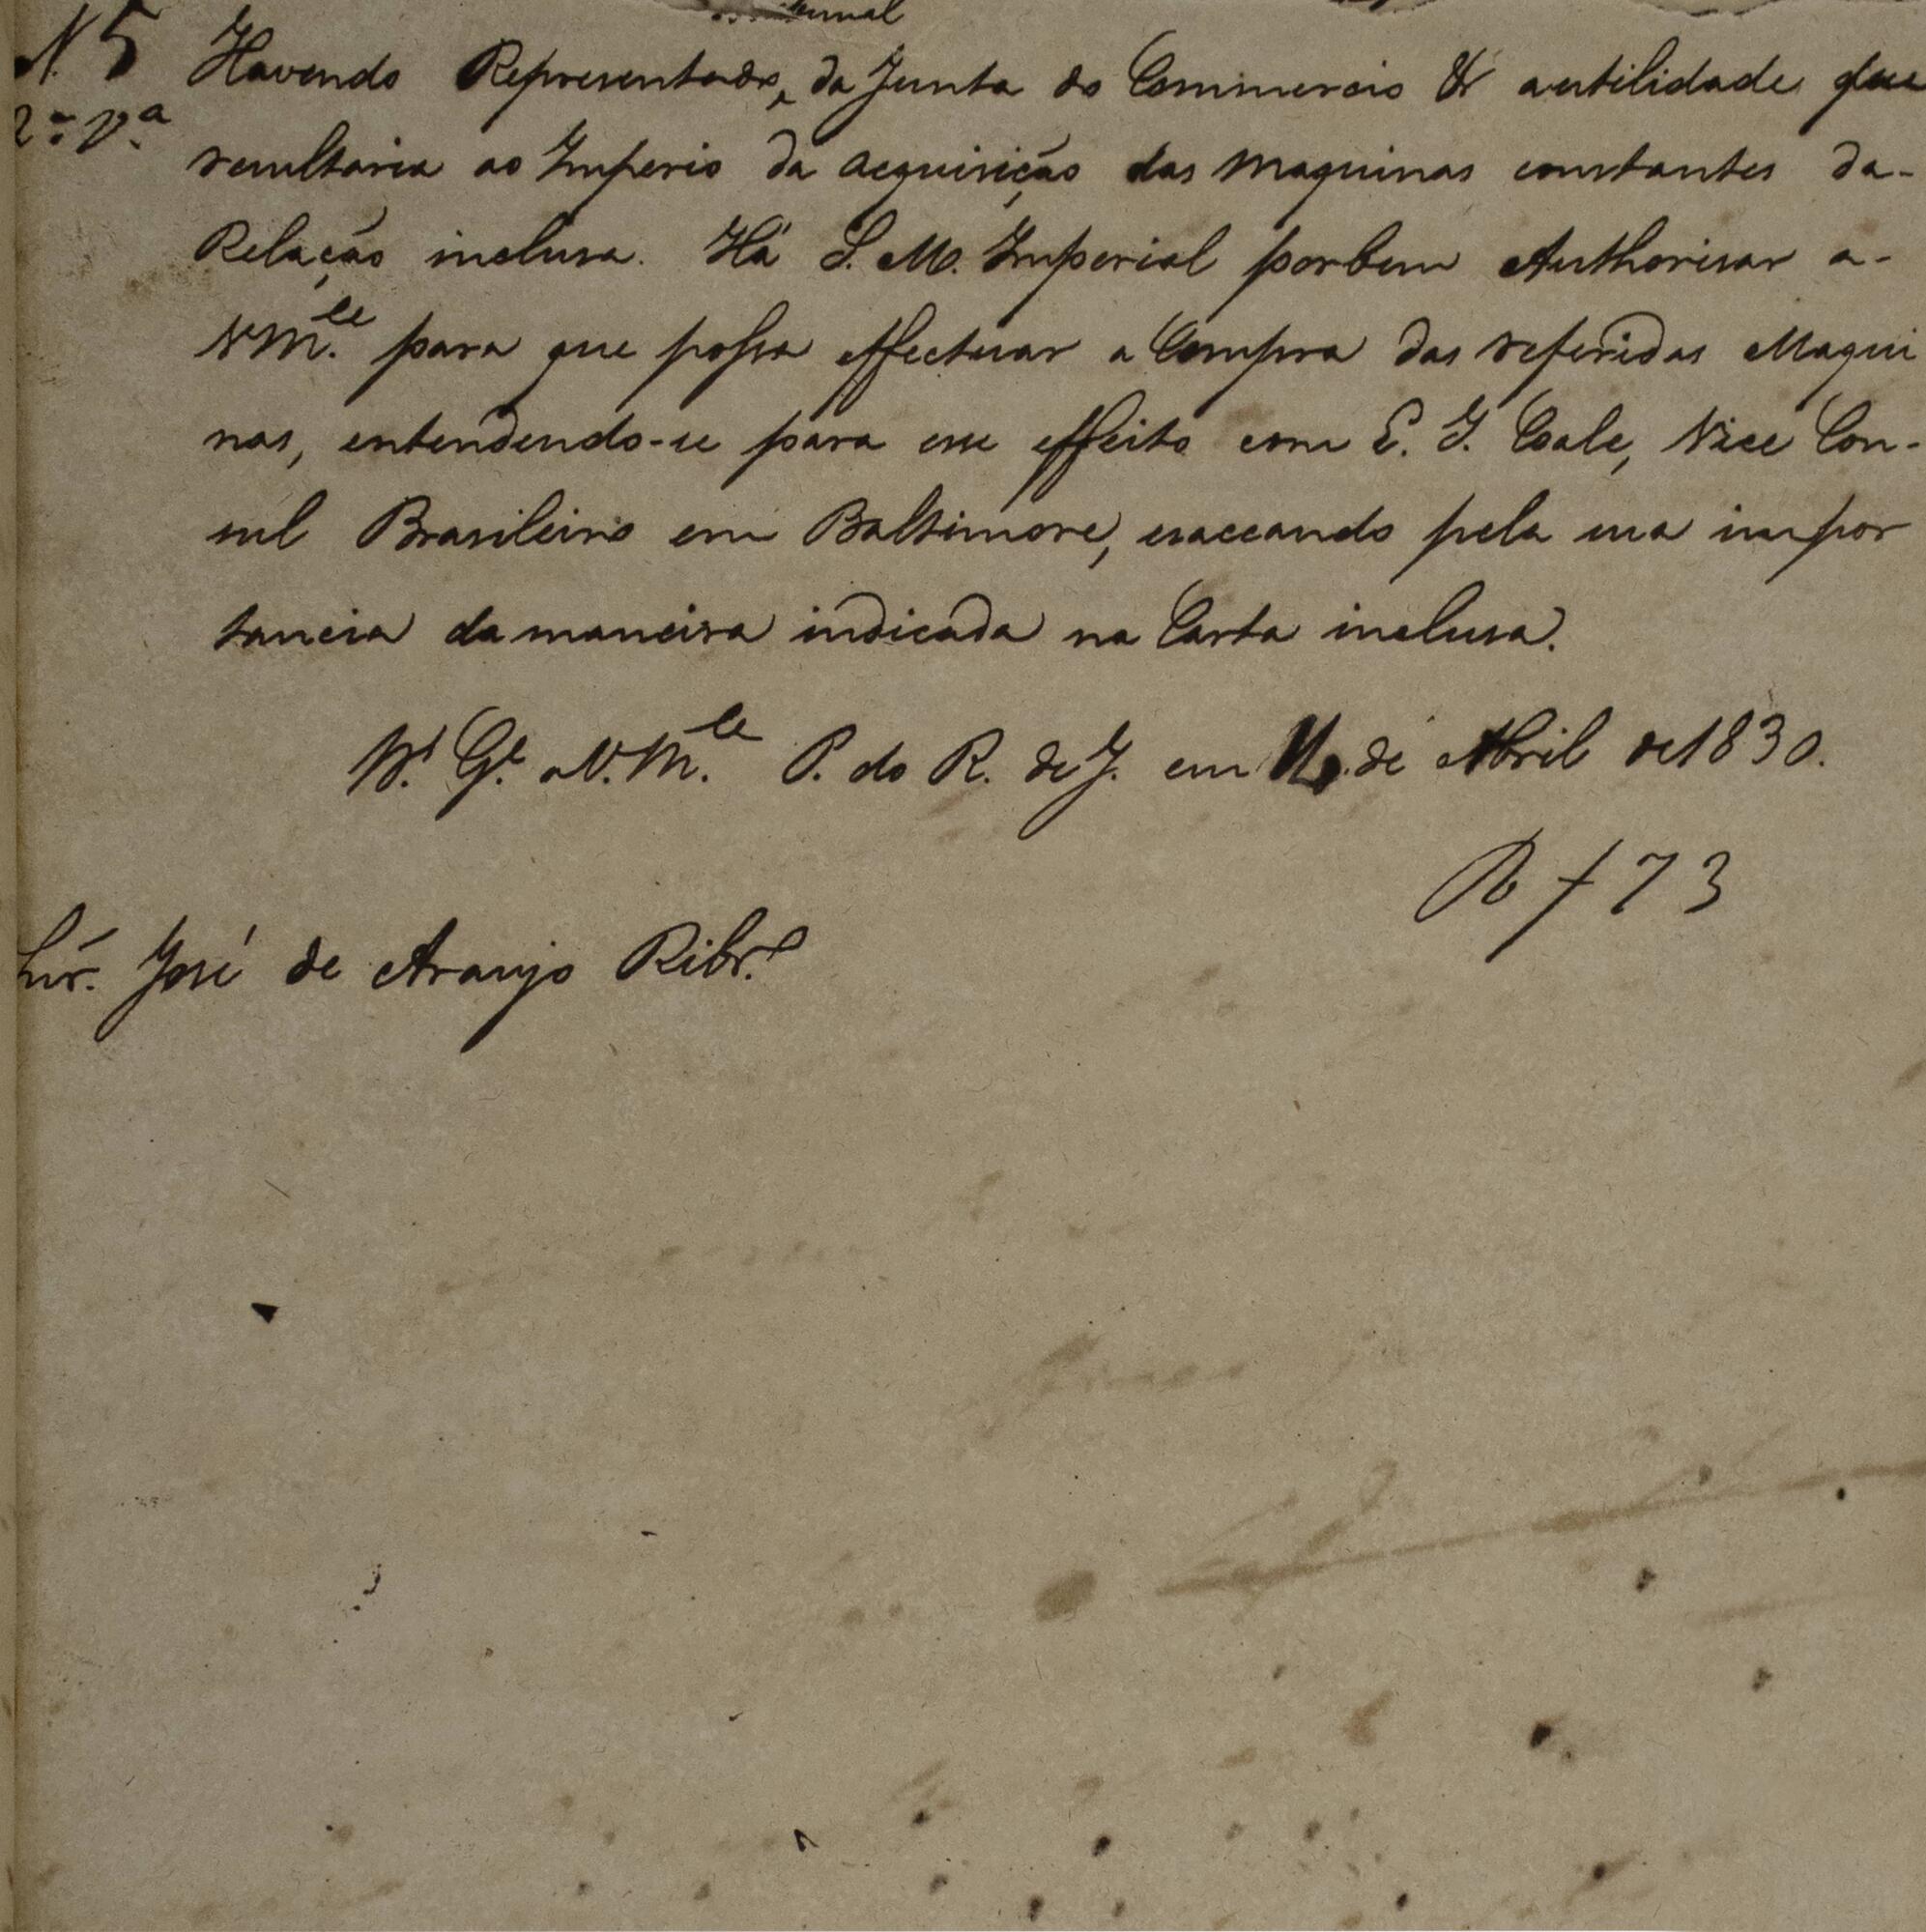 N. 5 Havendo Representado, da Junta do Commercio &r a utilidade que
2.ª v.ª
resultaria ao Imperio da acquisição das maquinas constantes da-
Relação inclusa. Há S. M. Imperial por bem Authorisar a-
V M.ce para que possa effectuar a Compra das referidas Maqui
nas, entendendo-se para esse effeito com E. J. Coale, Vice Con-
sul Brasileiro em Baltimore, e saccando pela sua impor
tancia da maneira indicada na Carta inclusa.
D.s G.e a V. M.ce P. do R. de J. em de Abril de 1830.
R f 73
Snr. José de Araujo Ribr.o